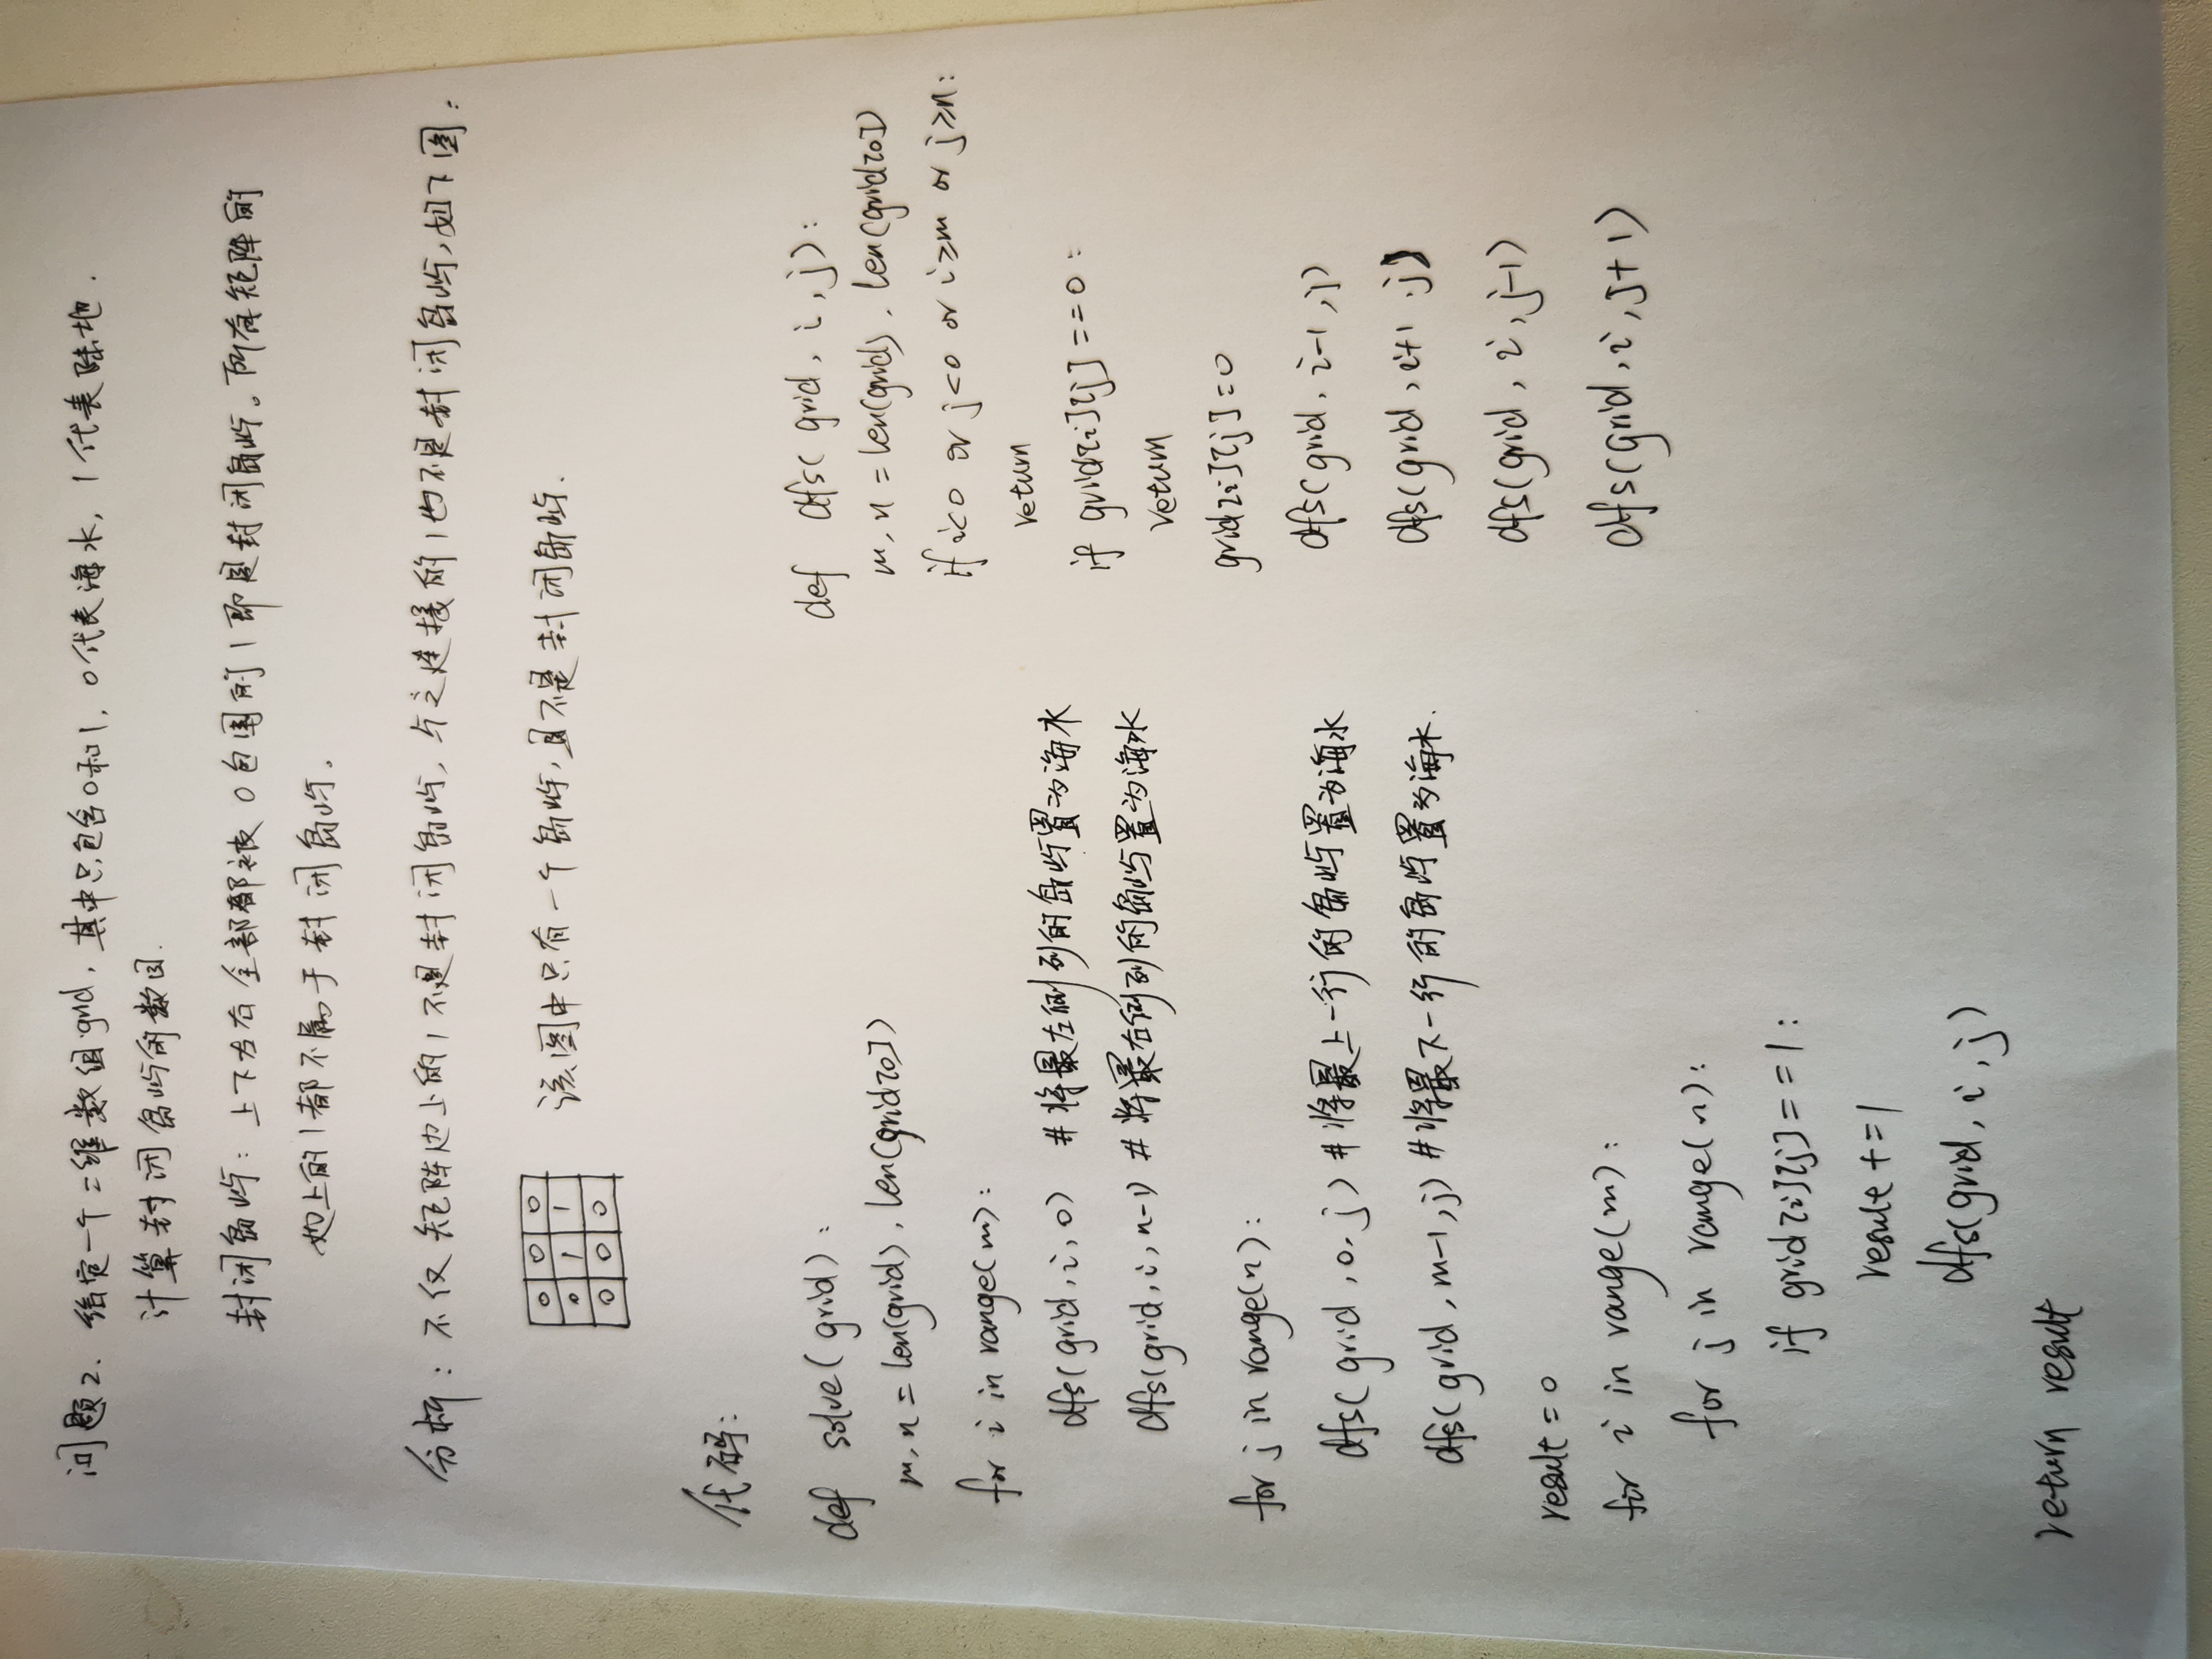 问题2. 给定一个二维数组grid, 其中只包含0和1, 0代表海水, 1代表陆地.
计算封闭岛屿的数目.
封闭岛屿: 上下左右全部都被0包围的1即是封闭岛屿。所有矩阵的
边上的1都不属于封闭岛屿。
分析: 不仅矩阵边上的1不是封闭岛屿, 与之连接的1也不是封闭岛屿, 如下图:
0 0 0
0 1 1
0 0 0
该图中只有一个岛屿, 且不是封闭岛屿.
代码:
def solve(grid):
m, n = len(grid), len(grid[0])
for i in range(m):
dfs(grid, i, 0) #将最左侧列的岛屿置为海水
dfs(grid, i, n-1) #将最右侧列的岛屿置为海水
for j in range(n):
dfs(grid, 0, j) #将最上一行的岛屿置为海水
dfs(grid, m-1, j) #将最下一行的岛屿置为海水.
result = 0
for i in range(m):
for j in range(n):
if grid[i][j] == 1:
result += 1
dfs(grid, i, j)
return result
def dfs(grid, i, j):
m, n = len(grid), len(grid[0])
if i<0 or j<0 or i≥m or j≥n:
return
if grid[i][j] == 0:
return
grid[i][j] = 0
dfs(grid, i-1, j)
dfs(grid, i+1, j)
dfs(grid, i, j-1)
dfs(grid, i, j+1)